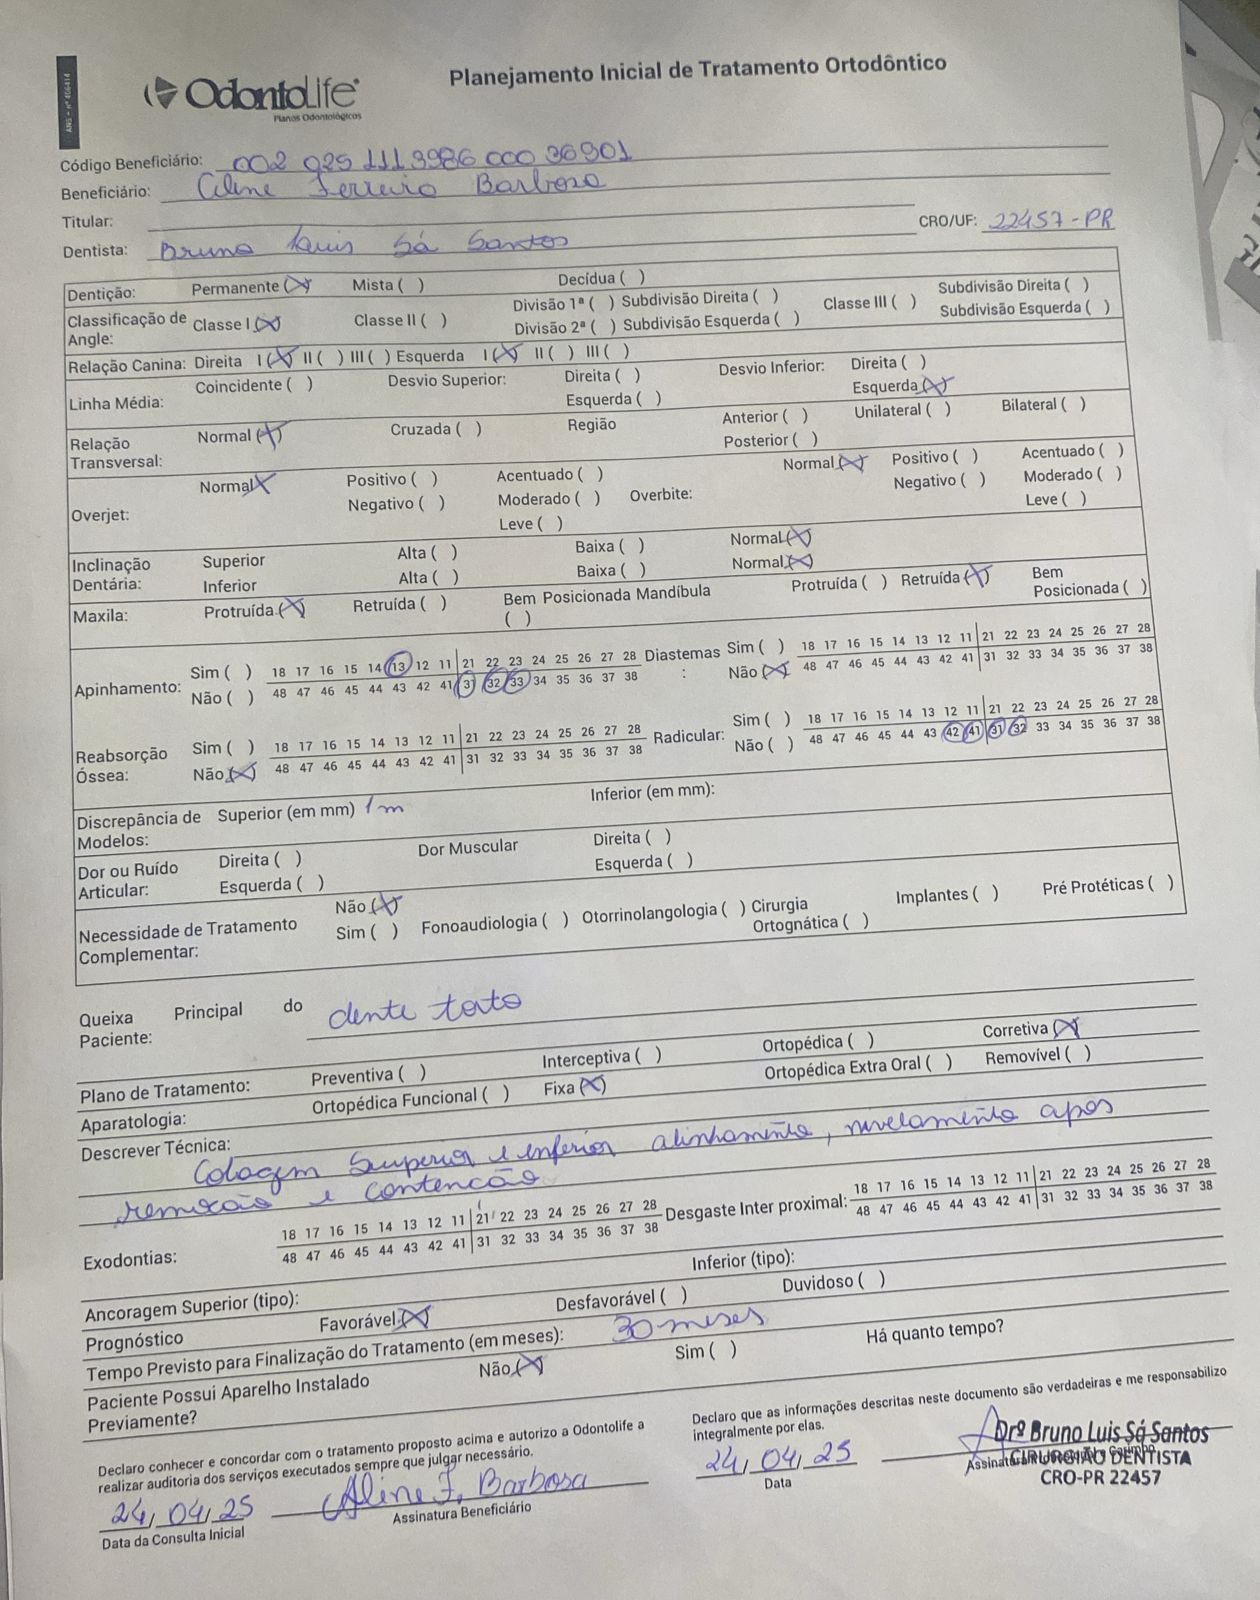 ANS - nº 406414
OdontoLife
Planos Odontológicos
Planejamento Inicial de Tratamento Ortodôntico
Código Beneficiário: 002 025 111 3986 000 36901
Beneficiário: Aline Ferreira Barbosa
Titular:
Dentista: Bruno Luis Sá Santos CRO/UF: 22457-PR
Dentição: Permanente (X) Mista ( ) Decídua ( )
Classificação de Angle: Classe I (X) Classe II ( ) Divisão 1ª ( ) Subdivisão Direita ( ) Classe III ( ) Subdivisão Direita ( )
Divisão 2ª ( ) Subdivisão Esquerda ( ) Subdivisão Esquerda ( )
Relação Canina: Direita I (X) II ( ) III ( ) Esquerda I (X) II ( ) III ( )
Linha Média: Coincidente ( ) Desvio Superior: Direita ( ) Desvio Inferior: Direita ( )
Esquerda ( ) Esquerda (X)
Relação Transversal: Normal (X) Cruzada ( ) Região Anterior ( ) Unilateral ( ) Bilateral ( )
Posterior ( )
Overjet: Normal X Positivo ( ) Acentuado ( ) Overbite: Normal (X) Positivo ( ) Acentuado ( )
Negativo ( ) Moderado ( ) Negativo ( ) Moderado ( )
Leve ( ) Leve ( )
Inclinação Dentária: Superior Alta ( ) Baixa ( ) Normal (X)
Inferior Alta ( ) Baixa ( ) Normal (X)
Maxila: Protruída (X) Retruída ( ) Bem Posicionada ( ) Mandíbula Protruída ( ) Retruída (X) Bem Posicionada ( )
Apinhamento: Sim ( ) 18 17 16 15 14 13 12 11 21 22 23 24 25 26 27 28 Diastemas: Sim ( ) 18 17 16 15 14 13 12 11 21 22 23 24 25 26 27 28
Não ( ) 48 47 46 45 44 43 42 41 31 32 33 34 35 36 37 38 Não (X) 48 47 46 45 44 43 42 41 31 32 33 34 35 36 37 38
Reabsorção Óssea: Sim ( ) 18 17 16 15 14 13 12 11 21 22 23 24 25 26 27 28 Radicular: Sim ( ) 18 17 16 15 14 13 12 11 21 22 23 24 25 26 27 28
Não (X) 48 47 46 45 44 43 42 41 31 32 33 34 35 36 37 38 Não ( ) 48 47 46 45 44 43 42 41 31 32 33 34 35 36 37 38
Discrepância de Modelos: Superior (em mm) 1 m Inferior (em mm):
Dor ou Ruído Articular: Direita ( ) Dor Muscular Direita ( )
Esquerda ( ) Esquerda ( )
Necessidade de Tratamento Complementar: Não (X)
Sim ( ) Fonoaudiologia ( ) Otorrinolangologia ( ) Cirurgia Ortognática ( ) Implantes ( ) Pré Protéticas ( )
Queixa Principal do Paciente: dente torto
Plano de Tratamento: Preventiva ( ) Interceptiva ( ) Ortopédica ( ) Corretiva (X)
Aparatologia: Ortopédica Funcional ( ) Fixa (X) Ortopédica Extra Oral ( ) Removível ( )
Descrever Técnica:
Colagem Superior e inferior alinhamento, nivelamento apos
remoção e contenção
Exodontias: 18 17 16 15 14 13 12 11 21 22 23 24 25 26 27 28 Desgaste Inter proximal: 18 17 16 15 14 13 12 11 21 22 23 24 25 26 27 28
48 47 46 45 44 43 42 41 31 32 33 34 35 36 37 38 48 47 46 45 44 43 42 41 31 32 33 34 35 36 37 38
Ancoragem Superior (tipo): Inferior (tipo):
Prognóstico Favorável (X) Desfavorável ( ) Duvidoso ( )
Tempo Previsto para Finalização do Tratamento (em meses): 30 meses
Paciente Possui Aparelho Instalado Previamente? Não (X) Sim ( ) Há quanto tempo?
Declaro conhecer e concordar com o tratamento proposto acima e autorizo a Odontolife a
realizar auditoria dos serviços executados sempre que julgar necessário.
24/04/25 Aline F. Barbosa
Data da Consulta Inicial Assinatura Beneficiário
Declaro que as informações descritas neste documento são verdadeiras e me responsabilizo
integralmente por elas.
24/04/25
Data
Drº Bruno Luis Sá Santos
CIRURGIÃO DENTISTA
CRO-PR 22457